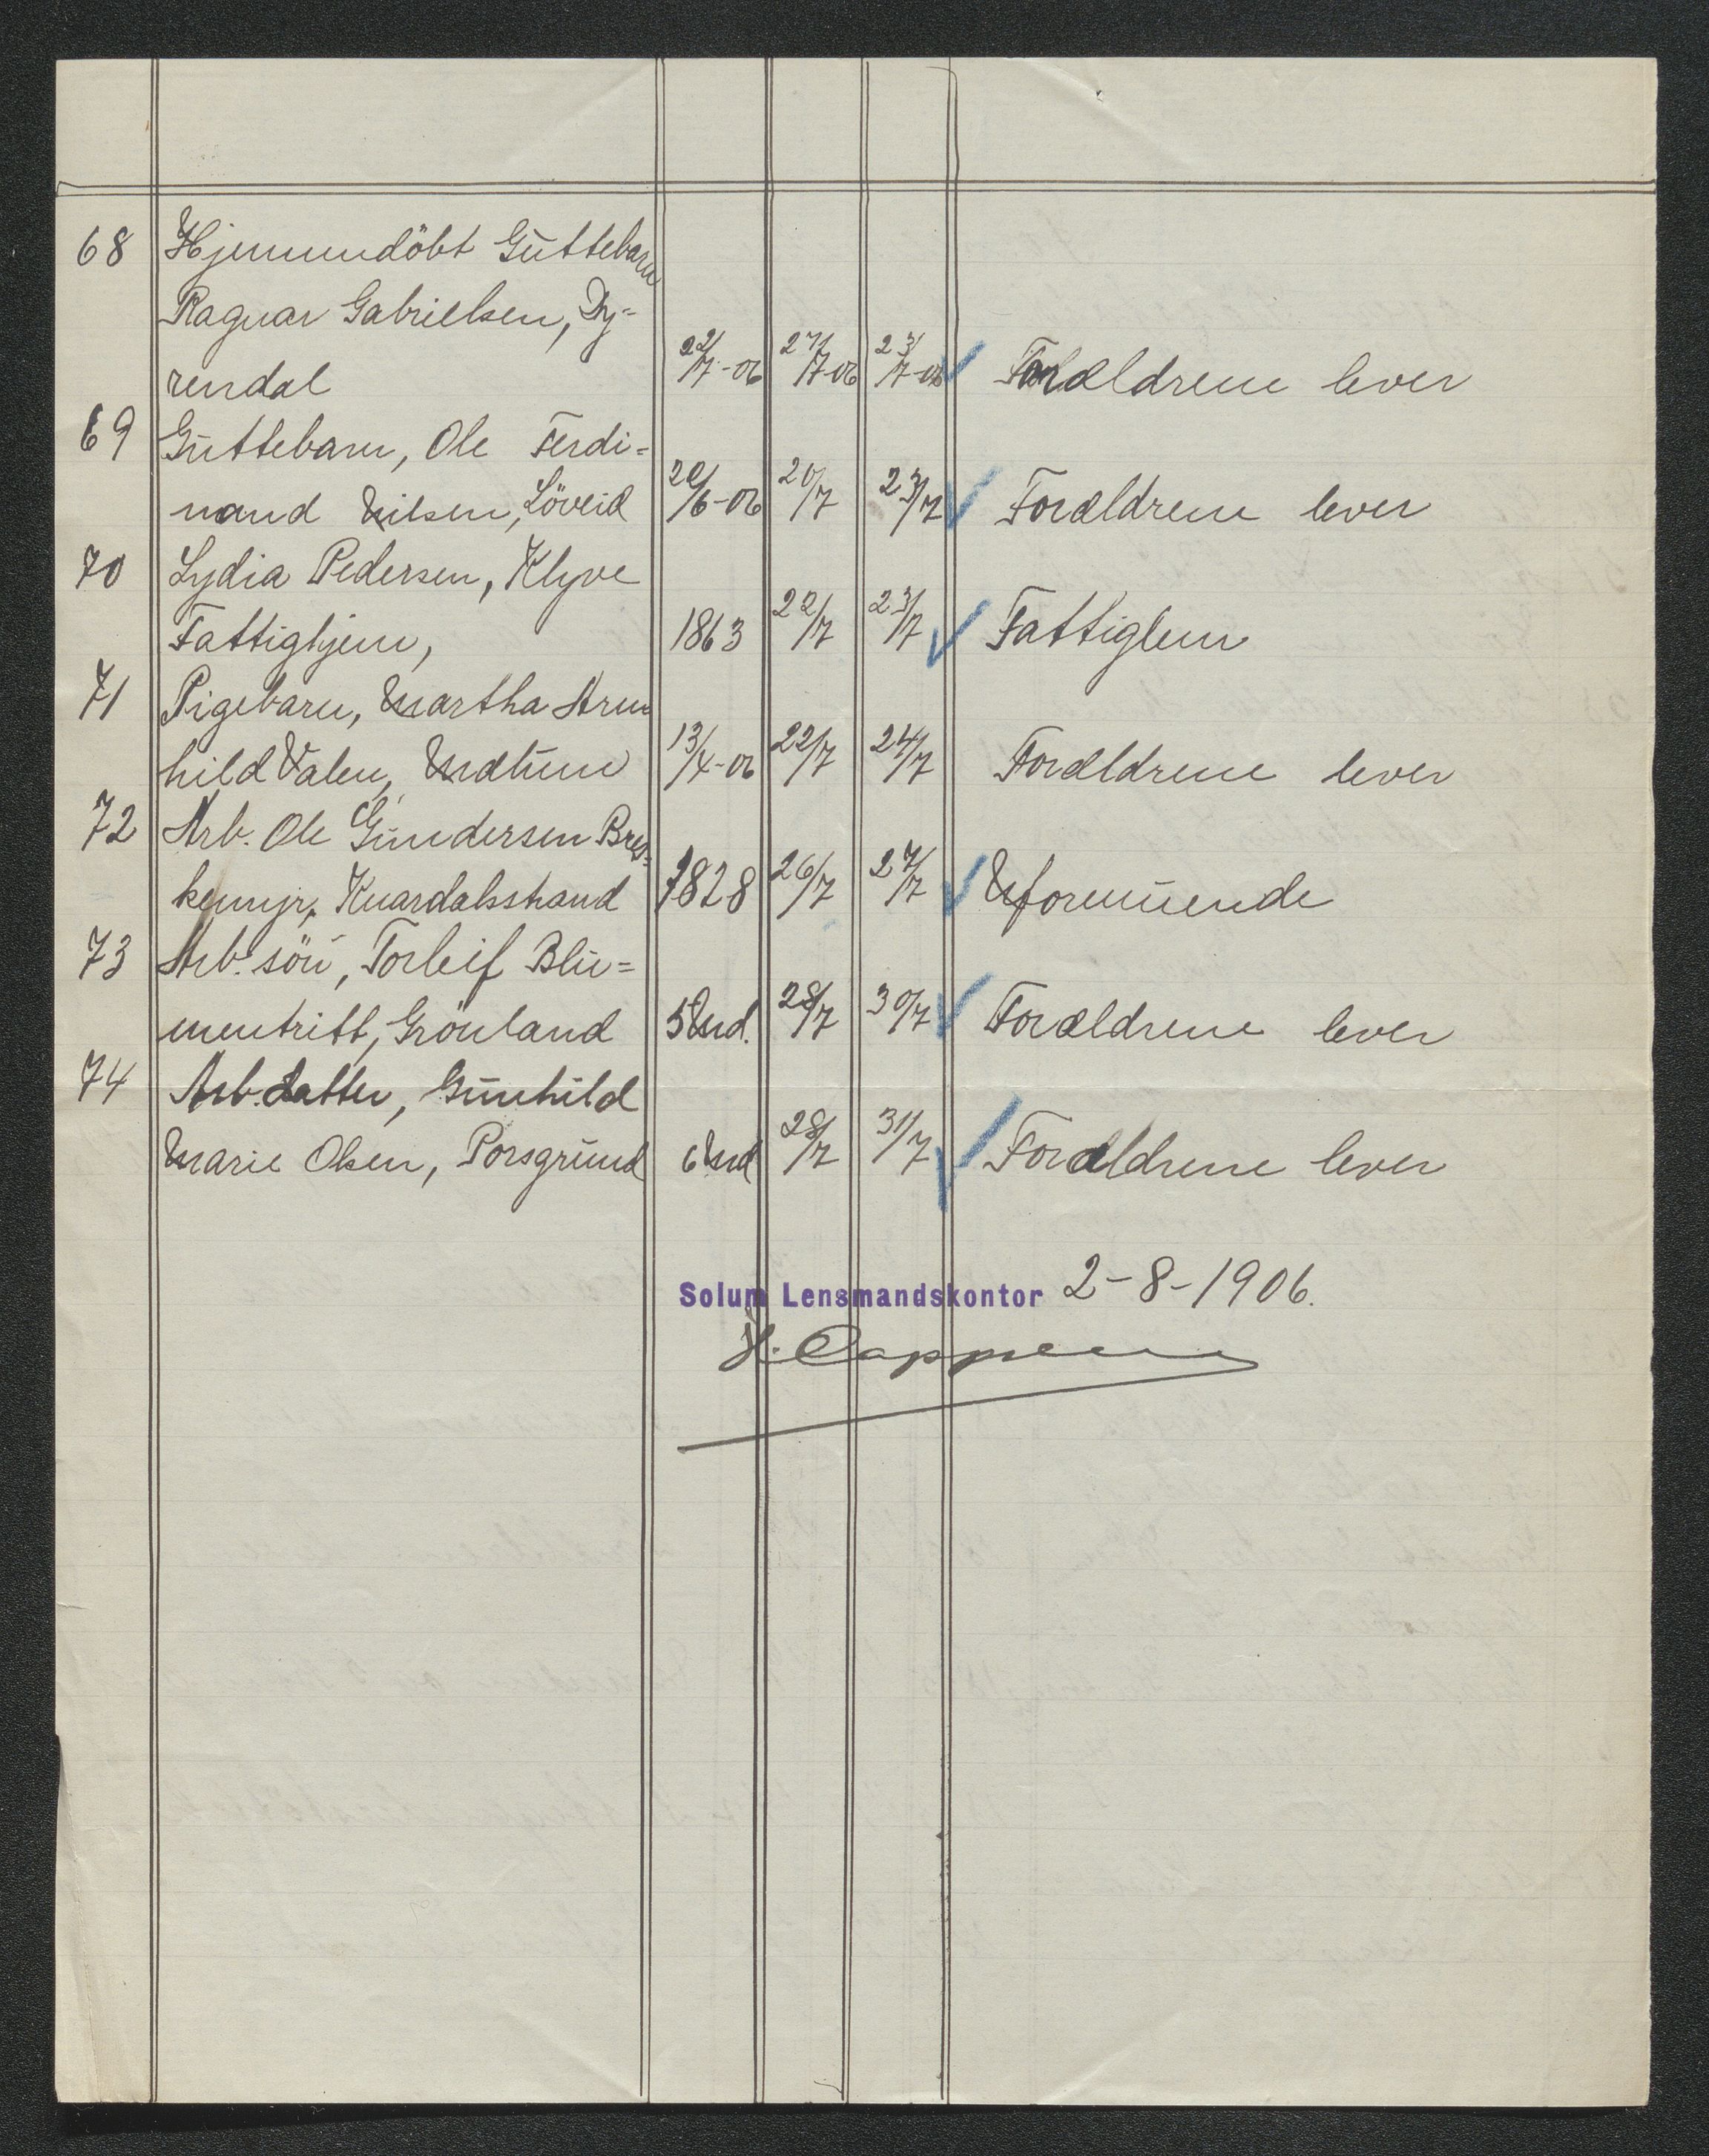 68 Hjemmedöbt Guttebarn
Ragnar Gabrielsen, Dy-
rendal 22/7-06 27/7-06 23/7-06 Forældrene lever
69 Guttebarn, Ole Ferdi-
nand Nilsen, Löveid 20/6-06 20/7 23/7 Forældrene lever
70 Lydia Pedersen, Klyve
Fattighjem, 1863 22/7 23/7 Fattiglem
71 Pigebarn, Martha Arn
hild Valen, Mælum 13/4-06 22/7 24/7 Forældrene lever
72 Arb. Ole Gundersen Bres-
kemyr, Knardalsstrand 1828 26/7 27/7 Uformuende
73 Arb. sön, Torleif Blu-
mentritt, Grönland 5 Md. 28/7 30/7 Forældrene lever
74 Arb. Datter, Gunhild
Marie Olsen, Porsgrund 6 Md 28/7 31/7 Forældrene lever
Solum Lensmandskontor 2-8-1906.
H. Cappelen